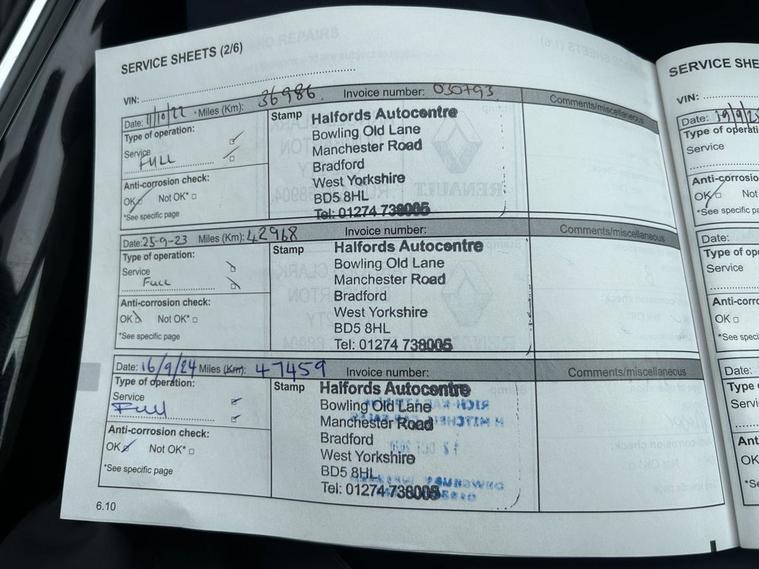 SERVICE SHEETS (2/6)
VIN:
Date: 11/10/22 Miles (Km): 36986 Invoice number: 030793 Comments/miscellaneous
Type of operation:
Service
FULL
Anti-corrosion check:
OK Not OK*
*See specific page
Stamp
Halfords Autocentre
Bowling Old Lane
Manchester Road
Bradford
West Yorkshire
BD5 8HL
Tel: 01274 738005
Date: 25-9-23 Miles (Km): 42968 Invoice number: Comments/miscellaneous
Type of operation:
Service
Full
Anti-corrosion check:
OK Not OK*
*See specific page
Stamp
Halfords Autocentre
Bowling Old Lane
Manchester Road
Bradford
West Yorkshire
BD5 8HL
Tel: 01274 738005
Date: 16/9/24 Miles (Km): 47459 Invoice number: Comments/miscellaneous
Type of operation:
Service
Full
Anti-corrosion check:
OK Not OK*
*See specific page
Stamp
Halfords Autocentre
Bowling Old Lane
Manchester Road
Bradford
West Yorkshire
BD5 8HL
Tel: 01274 738005
6.10
SERVICE SHE
VIN:
Date:
Type of operati
Service
Anti-corrosi
OK Not
*See specific pa
Date:
Type of op
Service
Anti-corro
OK
*See speci
Date:
Type
Servi
Ant
OK
*Se